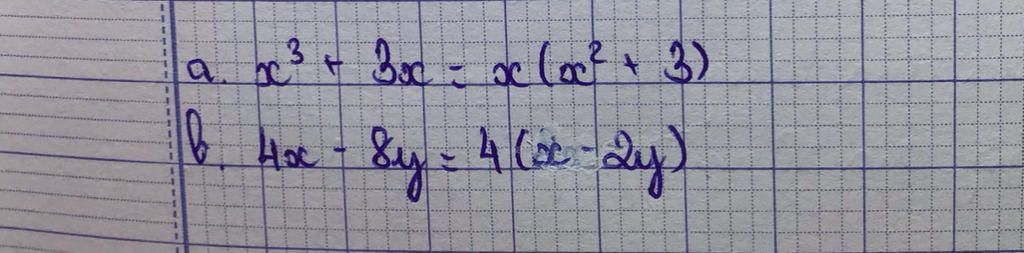 a. x³ + 3x = x(x² + 3)
b. 4x - 8y = 4(x - 2y)